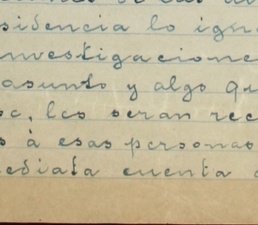 sidencia lo igno
nvestigacione
asunto y algo qu
les seran rec
s à esas personas
ediata cuenta